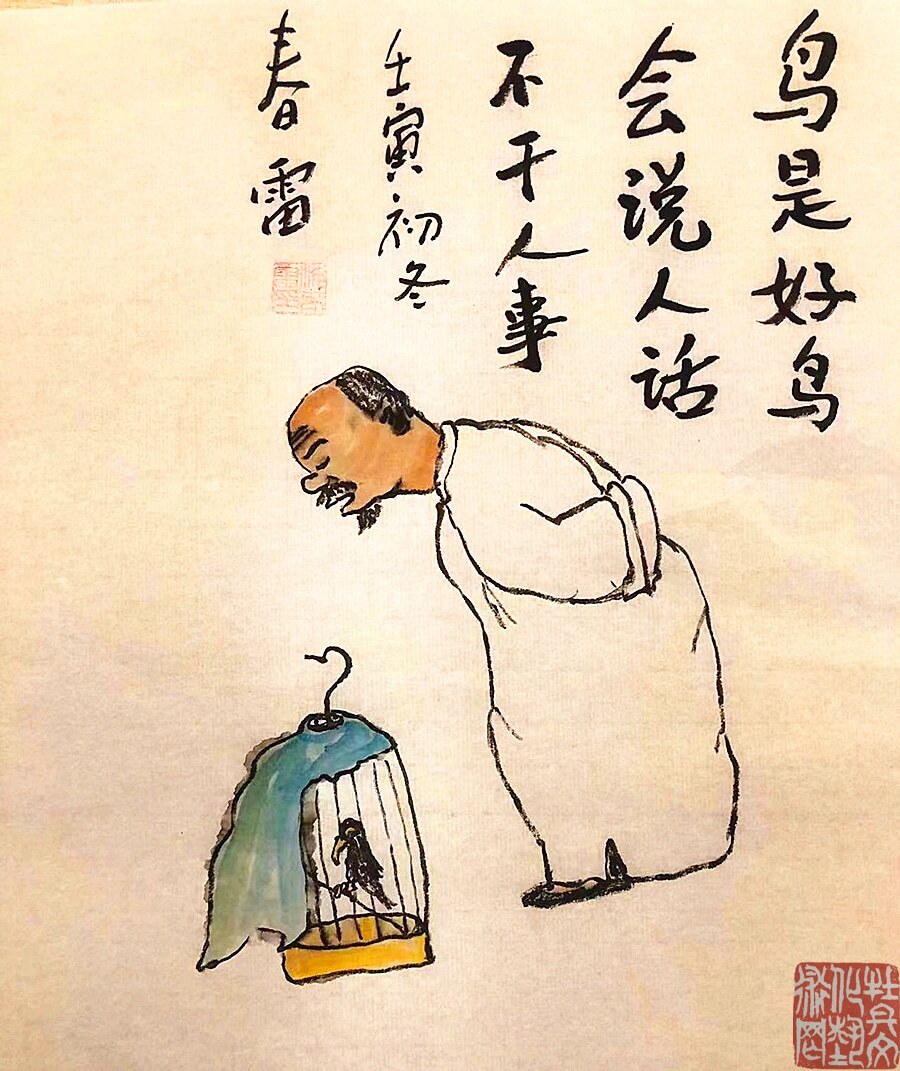 鸟是好鸟
会说人话
不干人事
壬寅初冬
春雷